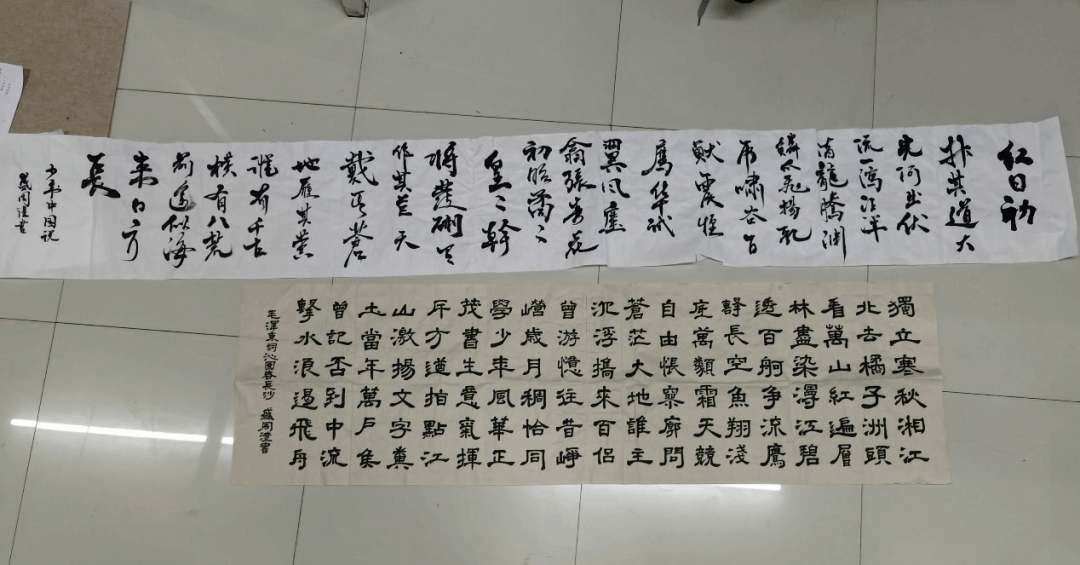 红日初
升其道大
光河出伏
流一瀉汪洋
潜龍騰渊
鱗爪飛揚乳
虎嘯谷百
獸震惶
鷹隼試
翼風塵
翕張奇花
初胎矞〻
皇〻幹
將發硎有
作其芒天
戴其蒼
地履其黃
縱有千古
横有八荒
前途似海
来日方
長
少年中国説
獨立寒秋湘江
北去橘子洲頭
看萬山紅遍層
林盡染漫江碧
透百舸争流鷹
擊長空魚翔淺
底萬類霜天競
自由悵寥廓問
蒼茫大地誰主
沉浮攜來百侣
曾游憶往昔崢
嶸歲月稠恰同
學少年風華正
茂書生意氣揮
斥方遒指點江
山激揚文字糞
土當年萬户侯
曾記否到中流
擊水浪遏飛舟
毛澤東詞沁園春長沙